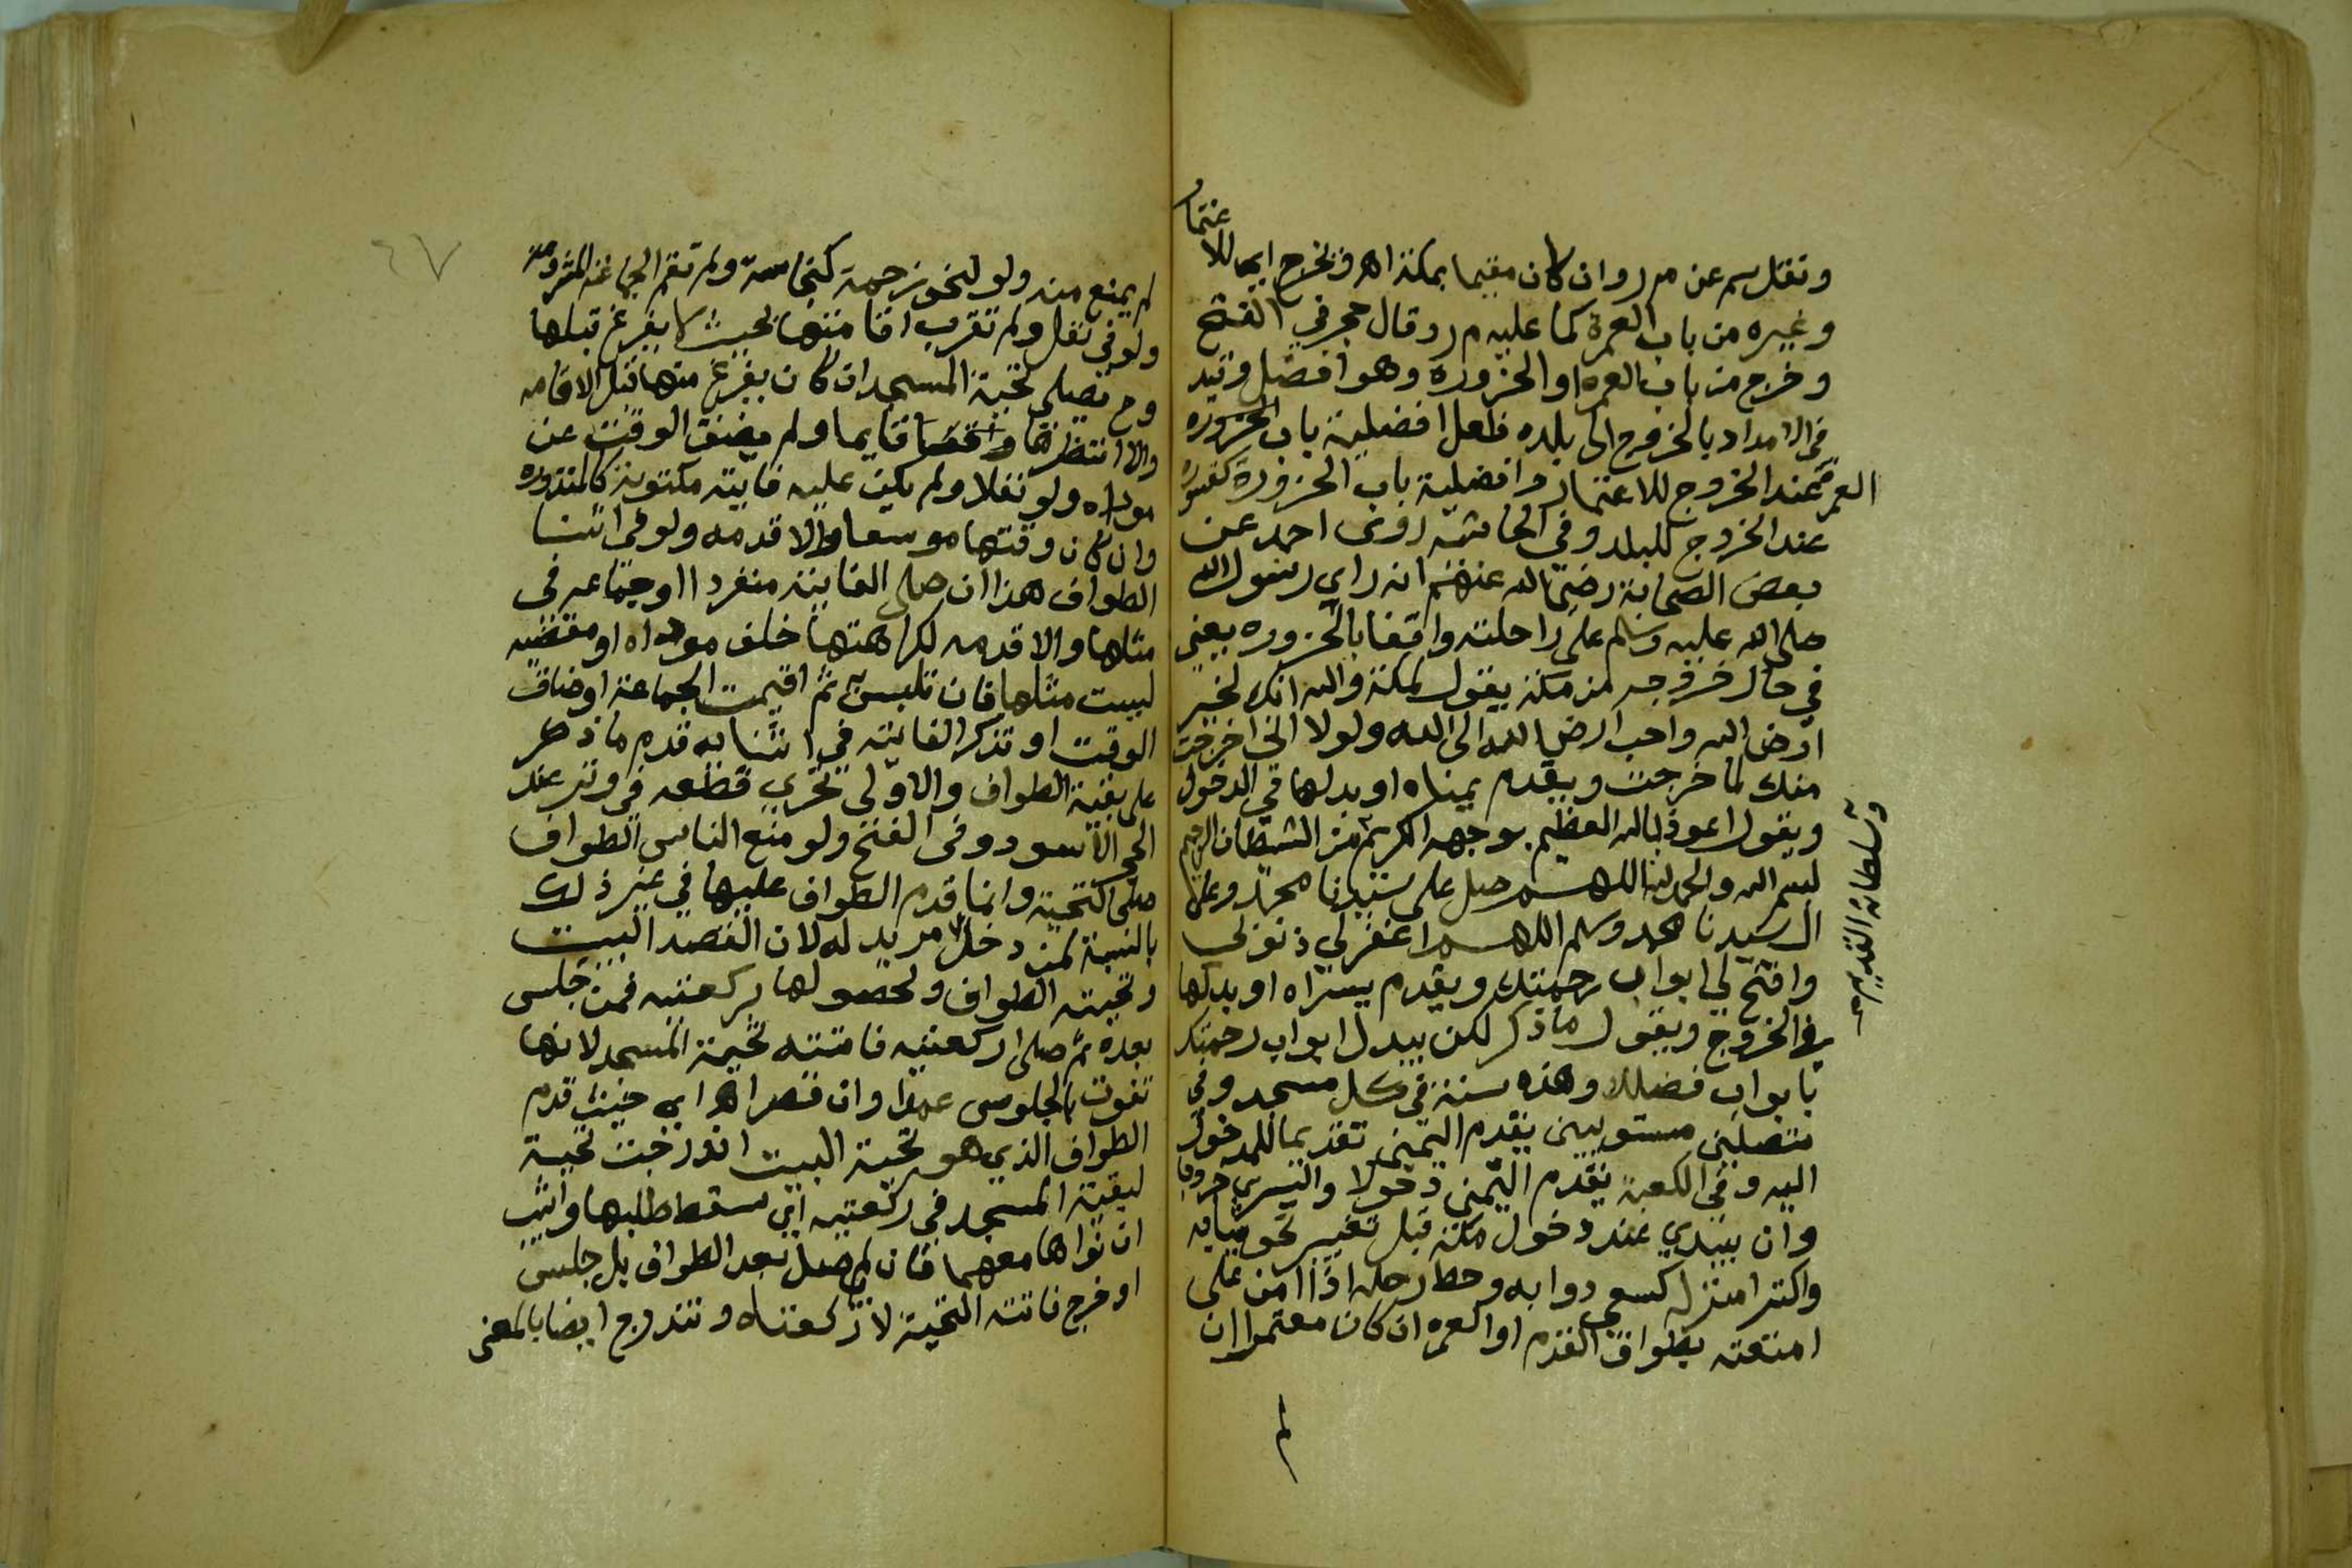 ونقل سم عن م ر وان كان مقيما بمكة اهـ ويخرج اي للاعتمار
وغيره من باب العمرة كما عليه م ر وقال حجر في الفتح
وخرج من باب العمره او الحزورة وهو افضل وقيد
في الامداد بالخروج الى بلده فلعل افضلية باب الحزوره
العمرة عند الخروج للاعتمار وافضلية باب الحزورة كغيره
عند الخروج للبلد وفي الحاشية روى احمد عن
بعض الصحابة رضي الله عنهم انه راي رسول الله
صلى الله عليه وسلم على راحلته واقفا بالحزوره يعني
في حال خروجه من مكة يقول لمكة والله انك لخير
ارض الله واحب ارض الله الى الله ولولا اني اخرجت
منك لما خرجت ويقدم يمناه او بدلها في الدخول
ويقول اعوذ بالله العظيم بوجهه الكريم من الشيطان الرجيم
وسلطانه القديم صح
بسم الله والحمد لله اللهم صل على سيدنا محمد وعلى
ال سيدنا محمد وسلم اللهم اغفر لي ذنوبي
وافتح لي ابواب رحمتك ويقدم يسراه او بدلها
في الخروج ويقول ما ذكر لكن يبدل ابواب رحمتك
بابواب فضلك وهذه سنة في كل مسجد وفي
متصلين مستويين يقدم اليمنى تقديما للدخول
اليه وفي الكعبة يقدم اليمنى دخولا واليسرى خروجا
وان يبتدي عند دخول مكة قبل تغيير نحو ثيابه
واكترا منزله كسعي دوابه وحط رحله اذا امن على
امتعته بطواف القدوم او العمره ان كان معتمرا ان
لم
٦٧
لم يمنع منه ولو لنحو زحمة كنجاسة ولم تقم الجماعة المشروعة
ولو في نفل ولم تقرب اقامتها بحيث لا يفرغ قبلها
وح يصلي تحية المسجد ان كان يفرغ منها قبل الاقامه
والا انتظرها قايما ولم يضق الوقت عن
موداه ولو نفلا ولم يكن عليه فايتة مكتوبة كالمنذوره
وان كان وقتها موسعا والا قدمه ولو في اثنا
الطواف هذا ان صلى الفايتة منفردا او جماعه في
مثلها والا قدمه لكراهتها خلف موداه او مقضيه
ليست مثلها فان تلبس به ثم اقيمت الجماعة او ضاق
الوقت او تذكر الفايته في اثنايه قدم ما ذكر
على بقية الطواف والاولى تحري قطعه في وتر عند
الحجر الاسود وفي الفتح ولو منع الناس الطواف
صلى التحية وانما قدم الطواف عليها في غير ذلك
بالنسبة لمن دخل مريد له لان القصد البيت
وتحيته الطواف ولحصولها بركعتيه فمن جلس
بعده ثم صلى ركعتيه فاتته تحية المسجد لانها
تفوت بالجلوس عمدا وان قصر اهـ اي حيث قدم
الطواف الذي هو تحية البيت اندرجت تحية
لبقية المسجد في ركعتيه اي سقط طلبها واثيب
ان نواها معهما فان لم يصل بعد الطواف بل جلس
او خرج فاتته التحية لا ركعتاه وتندرج ايضا بالمعنى